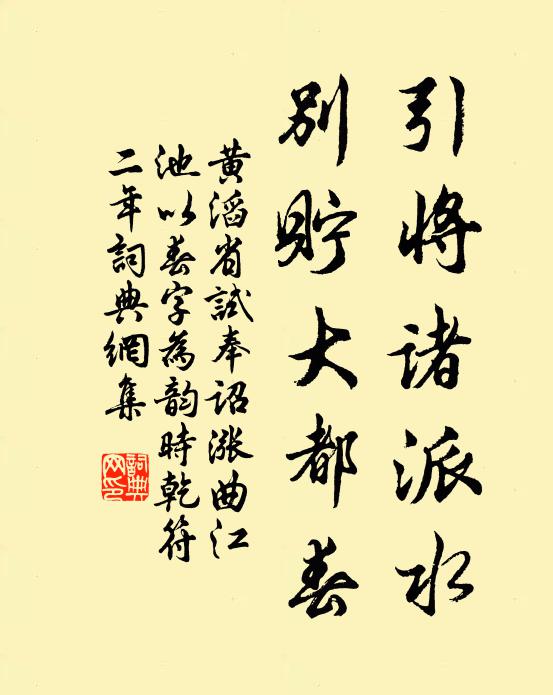 引將諸派水
別貯大都春
黃滔省試奉詔漲曲江
池以春字為韵時乾符
二年詞典網集
詞典
网印